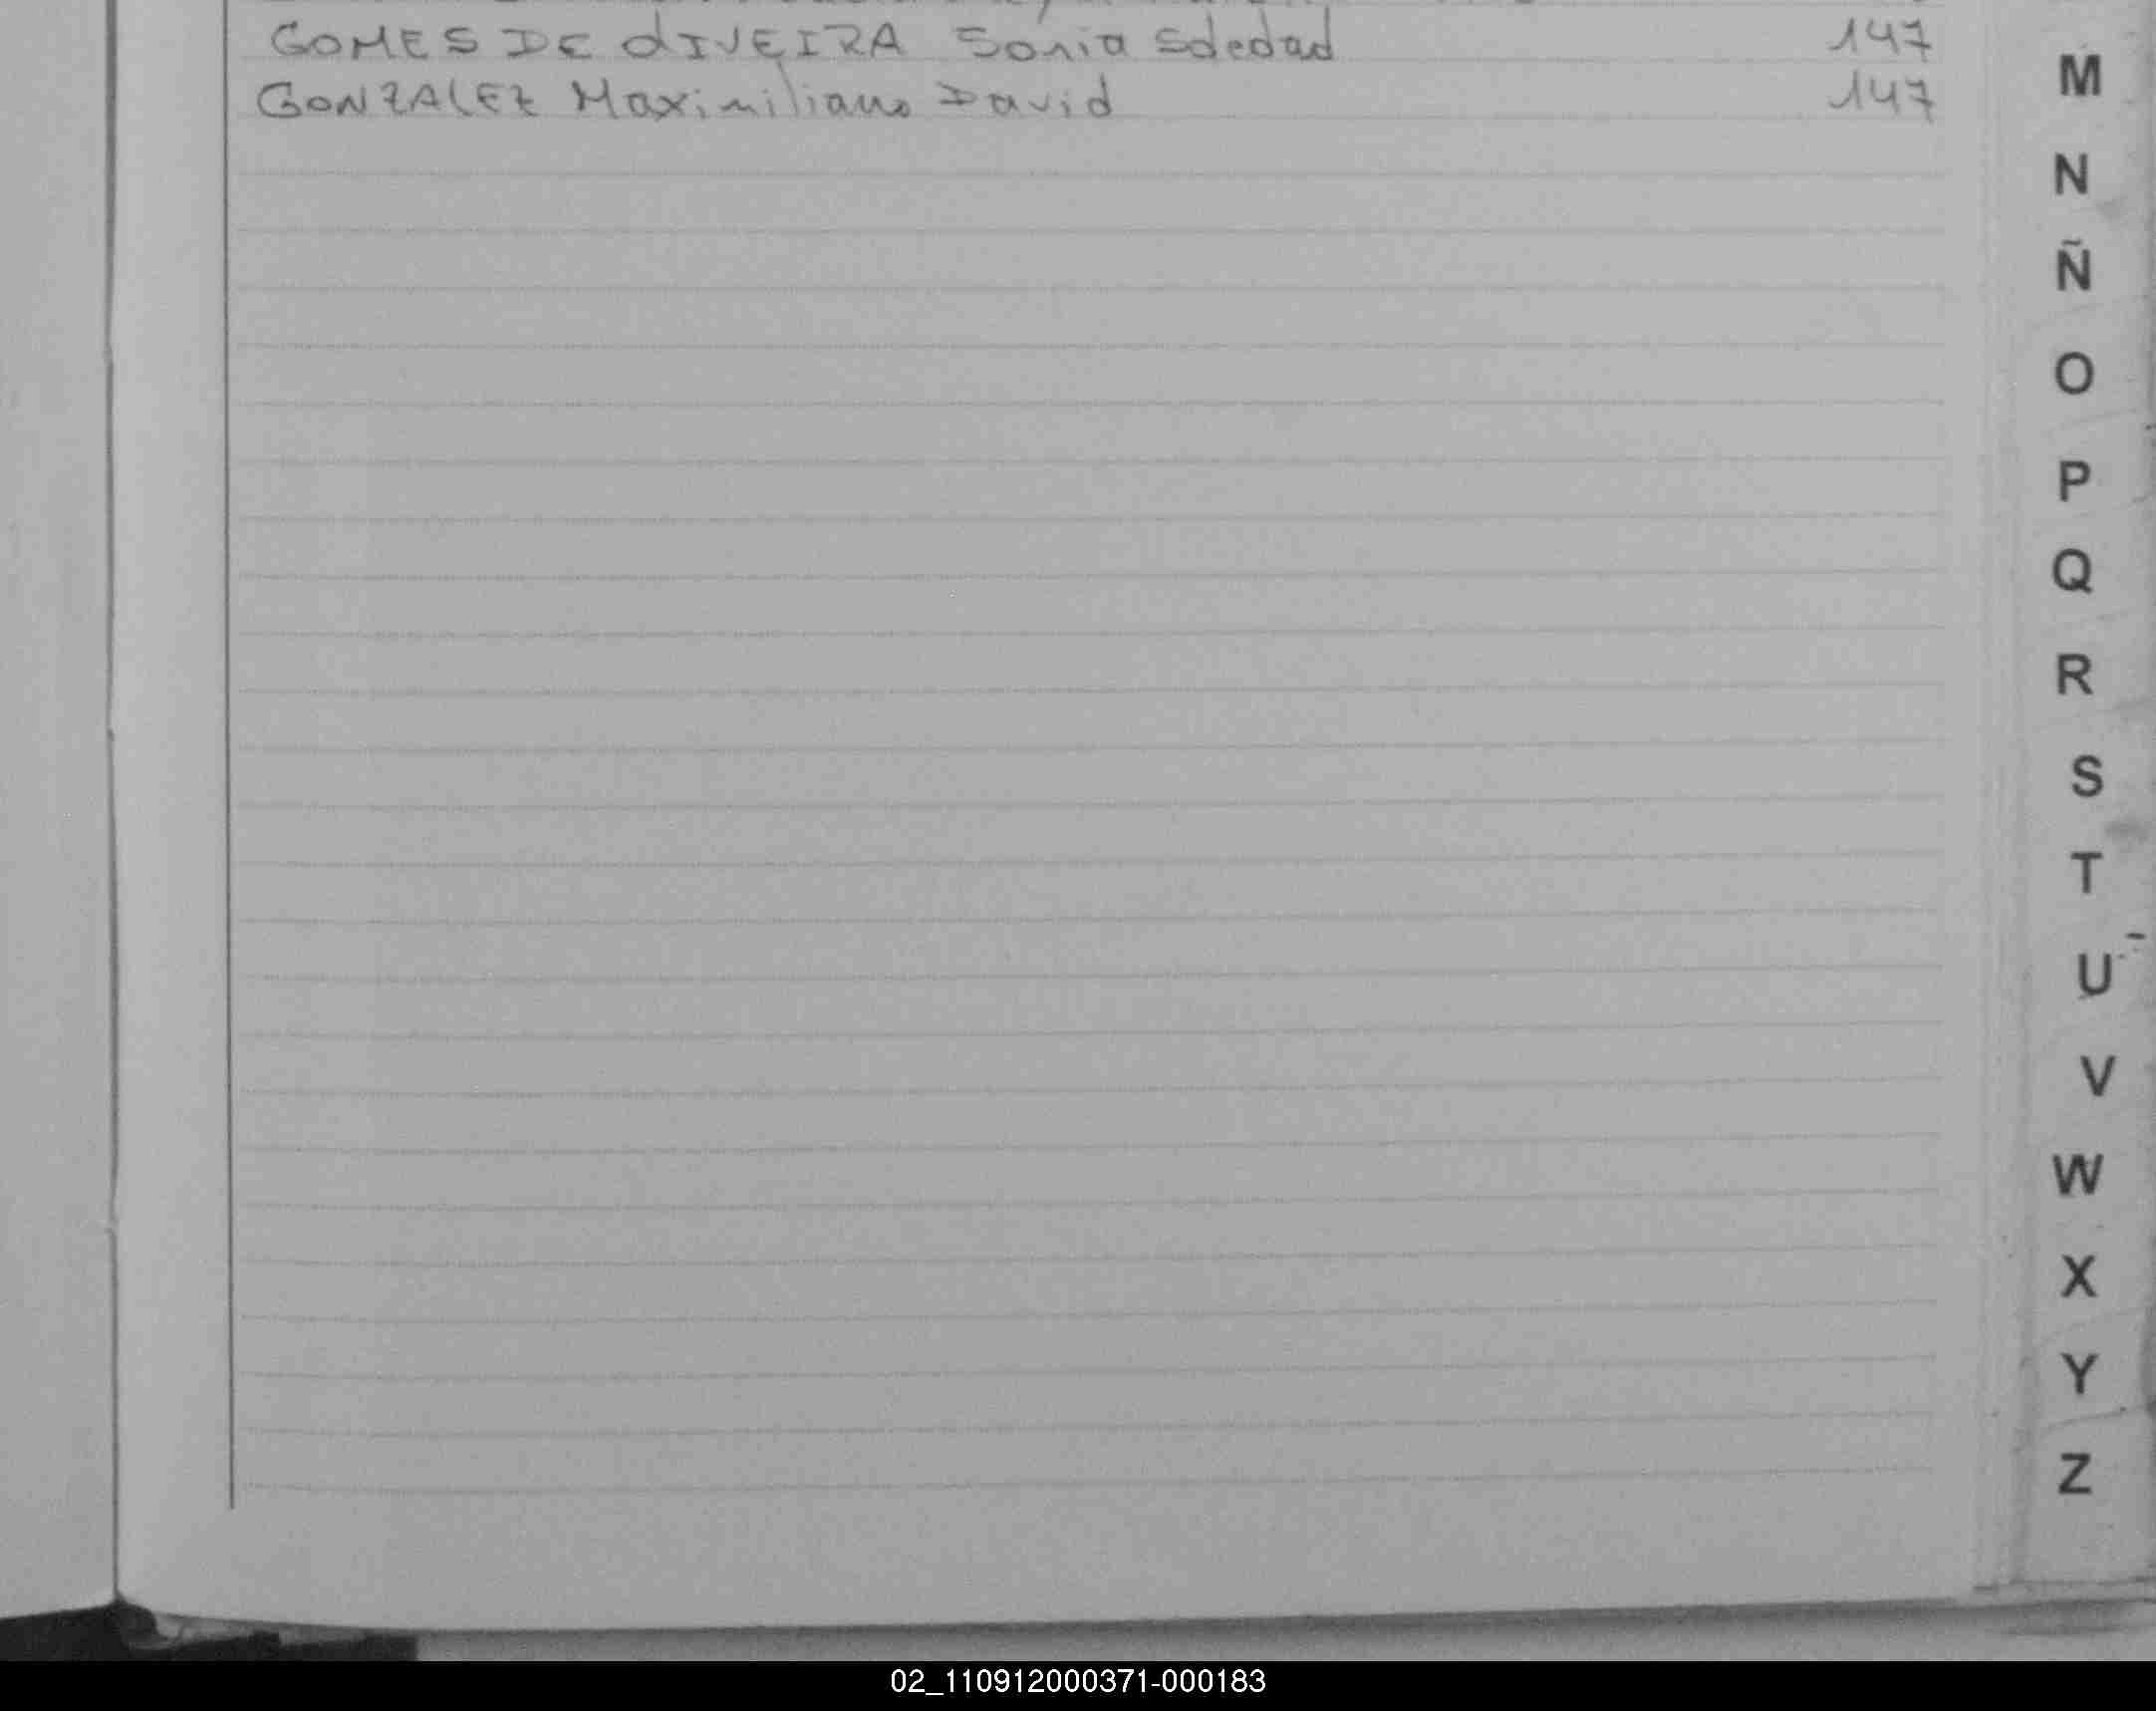 GOMES DE OLIVEIRA Sonia Soledad 147
GONZALEZ Maximiliano David 147
M
N
Ñ
O
P
Q
R
S
T
U
V
W
X
Y
Z
02_110912000371-000183